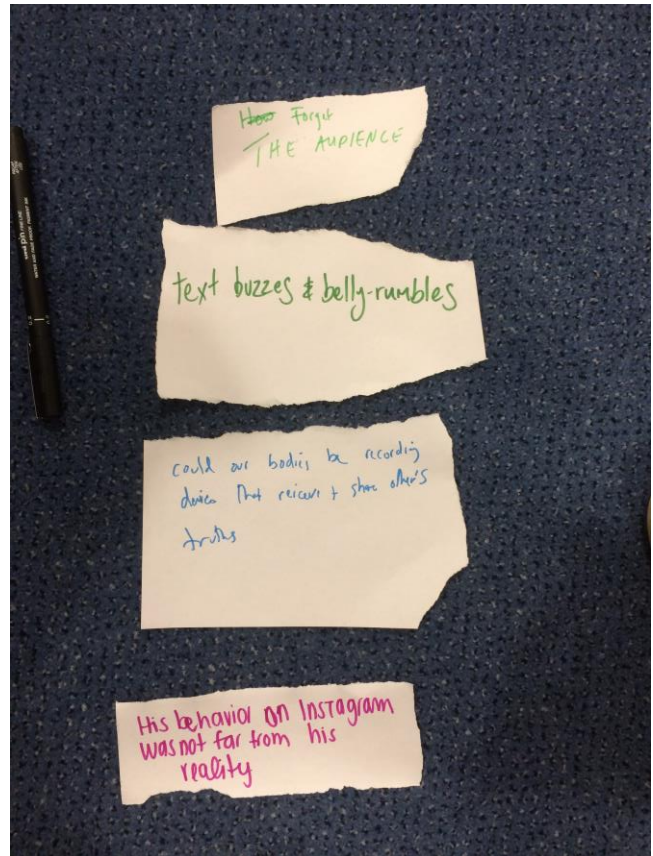 Forget
THE AUDIENCE
text buzzes & belly-rumbles
could our bodies be recording
devices that reiceve + share other's
truths
His behavior on Instagram
was not far from his
reality
uni pin FINE LINE